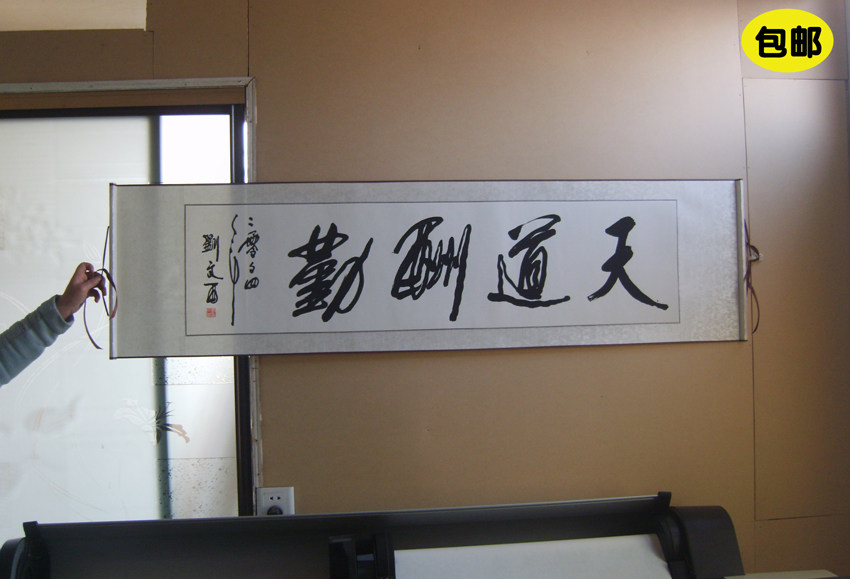 包邮
天道酬勤
二零零四
年
劉文西